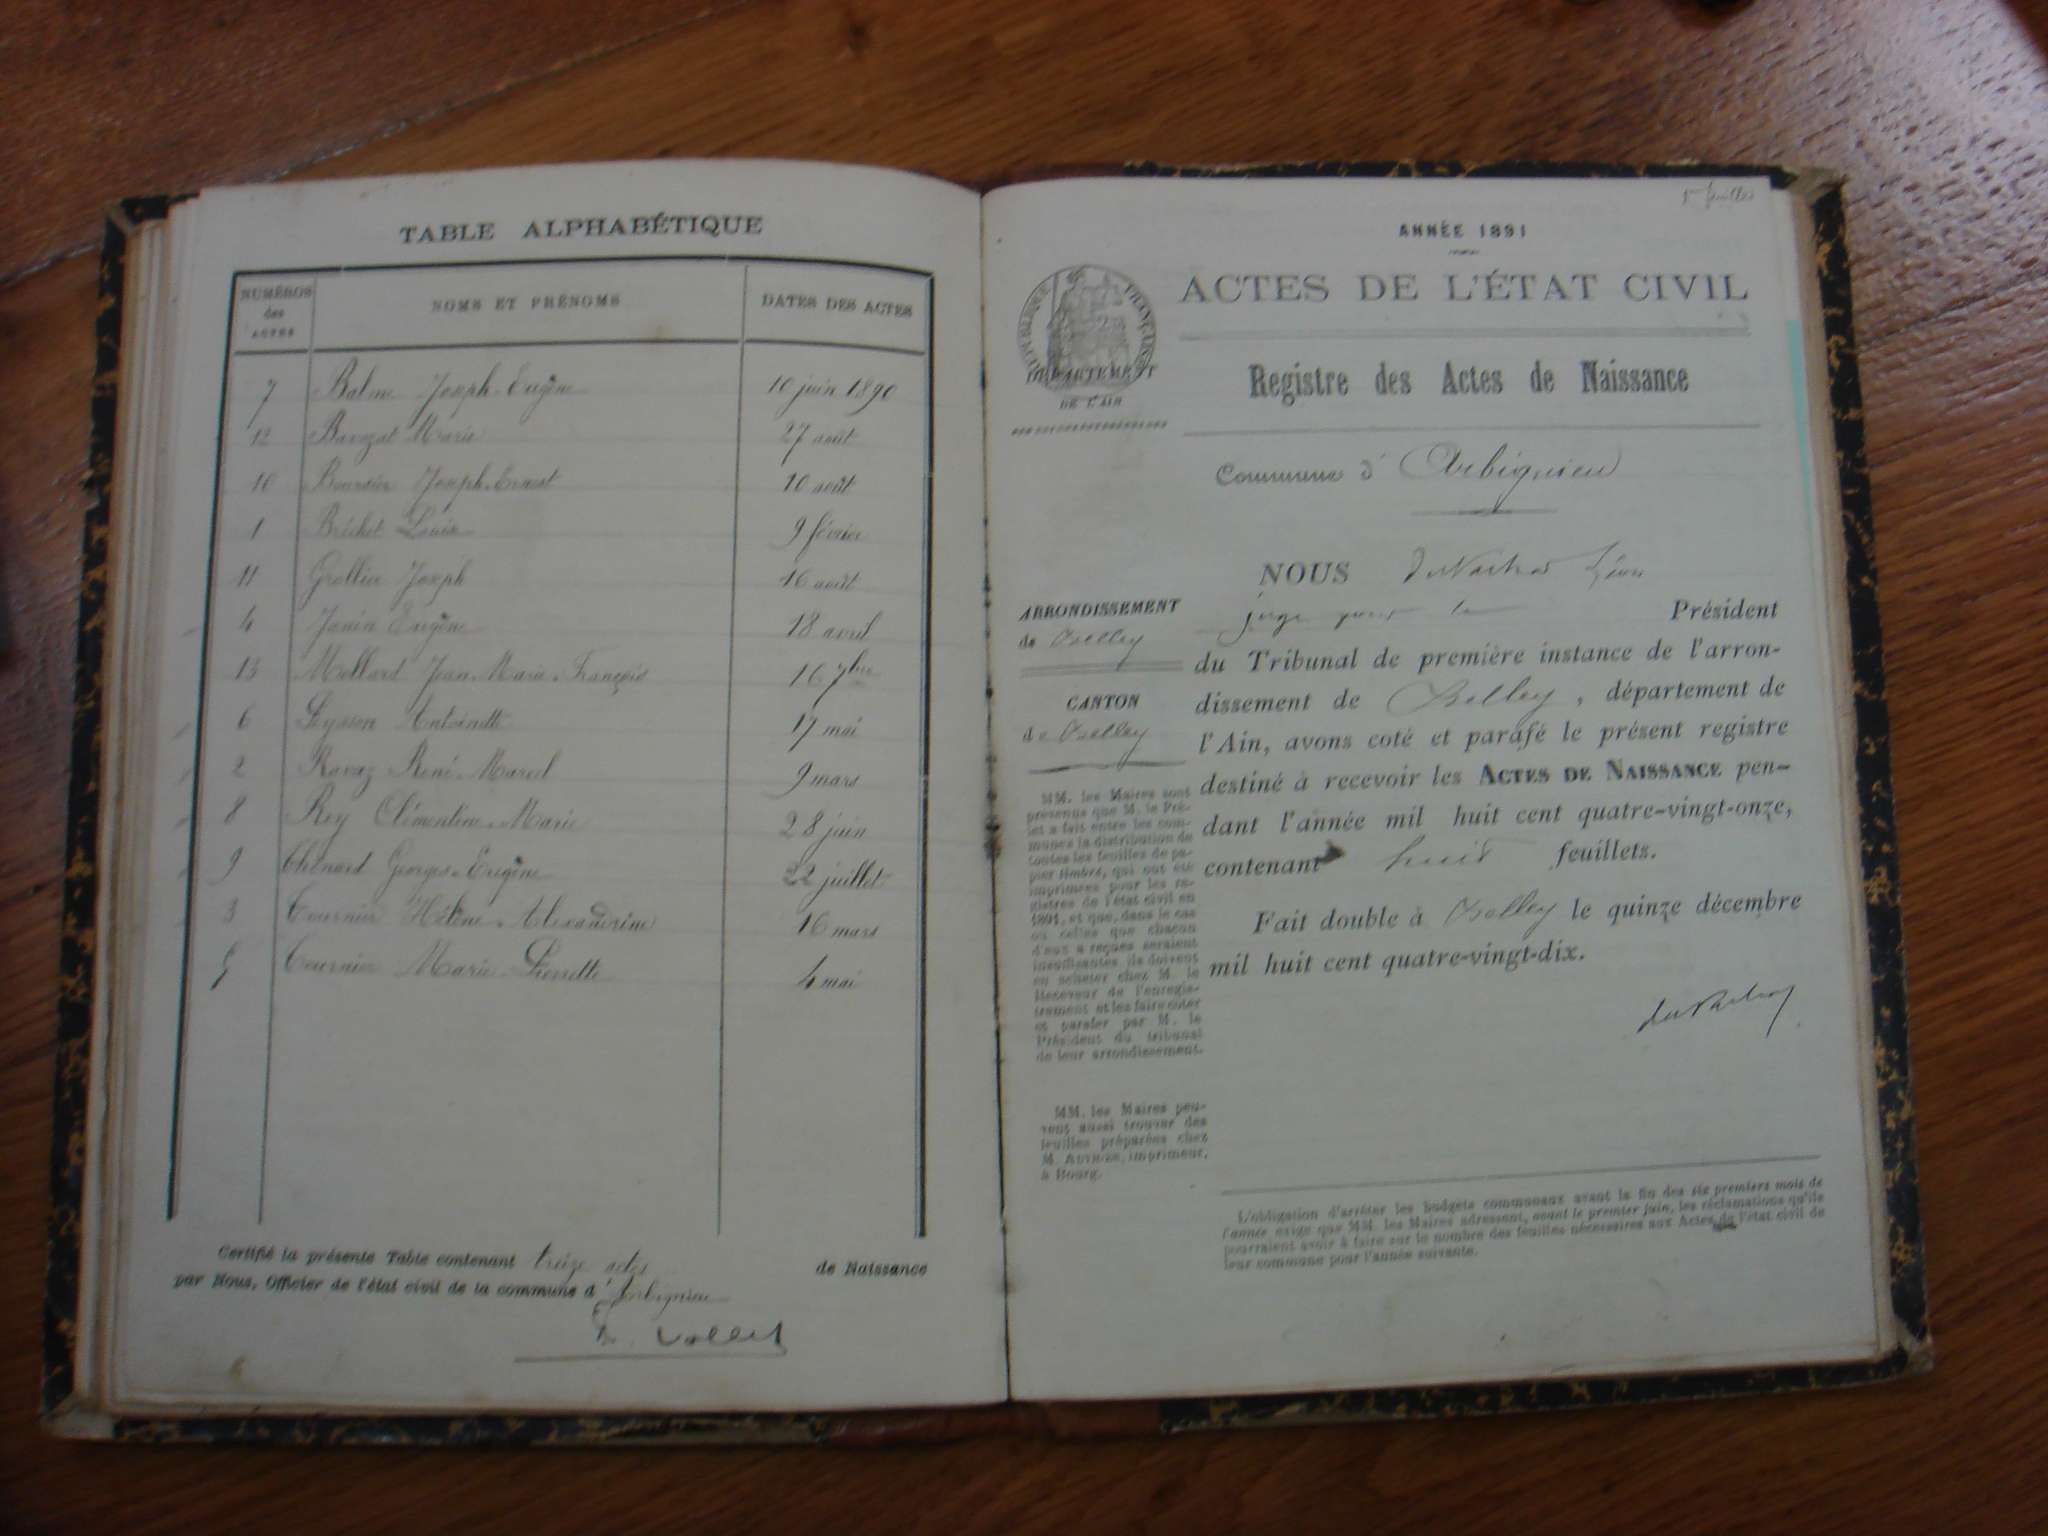 TABLE ALPHABÉTIQUE
NUMÉROS des ACTES NOMS ET PRÉNOMS DATES DES ACTES
7 Balme Joseph-Eugène 10 juin 1890
12 Bavozat Marie 27 août
10 Boursier Joseph-Ernest 10 août
1 Bréchet Louis 9 février
11 Grollier Joseph 16 août
4 Janin Eugène 18 avril
13 Mollard Jean-Marie-François 16 7bre
6 Peysson Antoinette 17 mai
2 Ravaz René-Marcel 9 mars
8 Rey Clémentine-Marie 28 juin
9 Thénard Georges-Eugène 22 juillet
3 Tournier Hélène-Alexandrine 16 mars
5 Tournier Marie-Pierrette 4 mai
Certifié la présente Table contenant treize actes de Naissance
par Nous, Officier de l'état civil de la commune d'Arbignieu
ANNÉE 1891
RÉPUBLIQUE FRANÇAISE
ACTES DE L'ÉTAT CIVIL
DÉPARTEMENT
DE L'AIN
Registre des Actes de Naissance
Commune d'Arbignieu
ARRONDISSEMENT
de Belley
CANTON
de Belley
MM. les Maires sont
prévenus que M. le Pré-
fet a fait entre les com-
munes la distribution de
toutes les feuilles de pa-
pier timbré, qui ont été
imprimées pour les re-
gistres de l'état civil en
1891, et que, dans le cas
où celles que chacun
d'eux a reçues seraient
insuffisantes, ils doivent
en acheter chez M. le
Receveur de l'enregis-
trement et les faire coter
et parafer par M. le
Président du tribunal
de leur arrondissement.
MM. les Maires peu-
vent aussi trouver des
feuilles préparées chez
M. imprimeur,
à Bourg.
NOUS
juge pour le Président
du Tribunal de première instance de l'arron-
dissement de Belley, département de
l'Ain, avons coté et parafé le présent registre
destiné à recevoir les ACTES DE NAISSANCE pen-
dant l'année mil huit cent quatre-vingt-onze,
contenant huit feuillets.
Fait double à Belley le quinze décembre
mil huit cent quatre-vingt-dix.
L'obligation d'arrêter les budgets communaux avant la fin des six premiers mois de
l'année exige que MM. les Maires adressent, avant le premier juin, les réclamations qu'ils
pourraient avoir à faire sur le nombre des feuilles nécessaires aux Actes de l'état civil de
leur commune pour l'année suivante.